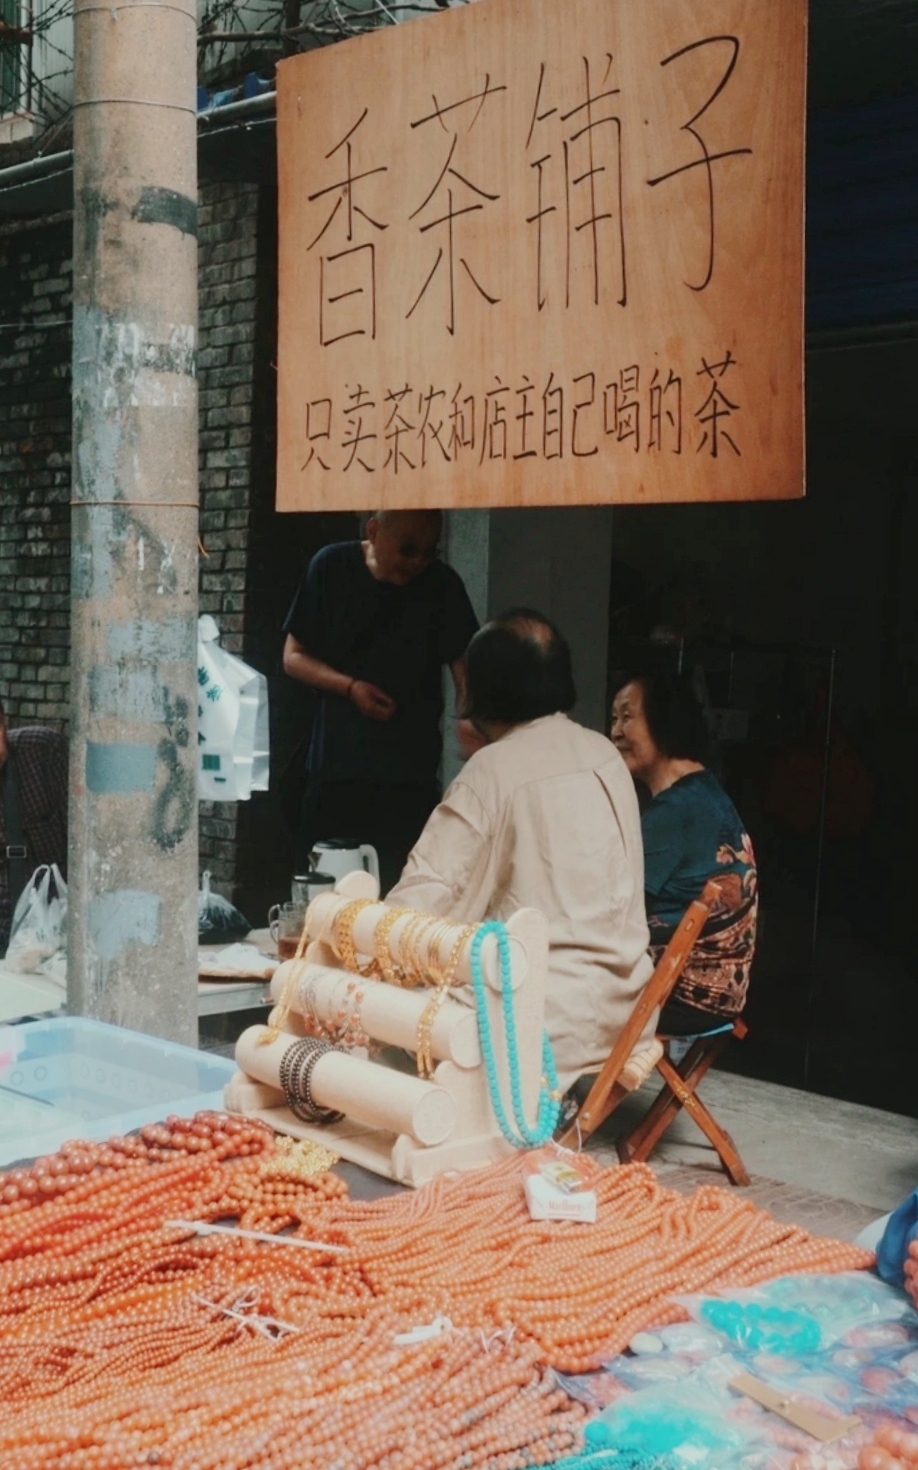 香茶铺子
只卖茶农和店主自己喝的茶
Marlboro